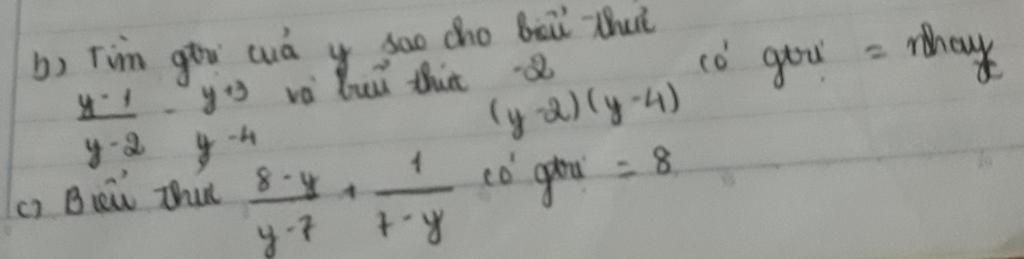 b) Tìm gtri cuả y sao cho biểu thưć
y-1/y-2 - y+3/y-4 và biểu thức -2/(y-2)(y-4) có gtri = nhau
c) Biểu thức 8-y/y-7 + 1/7-y có gtri = 8